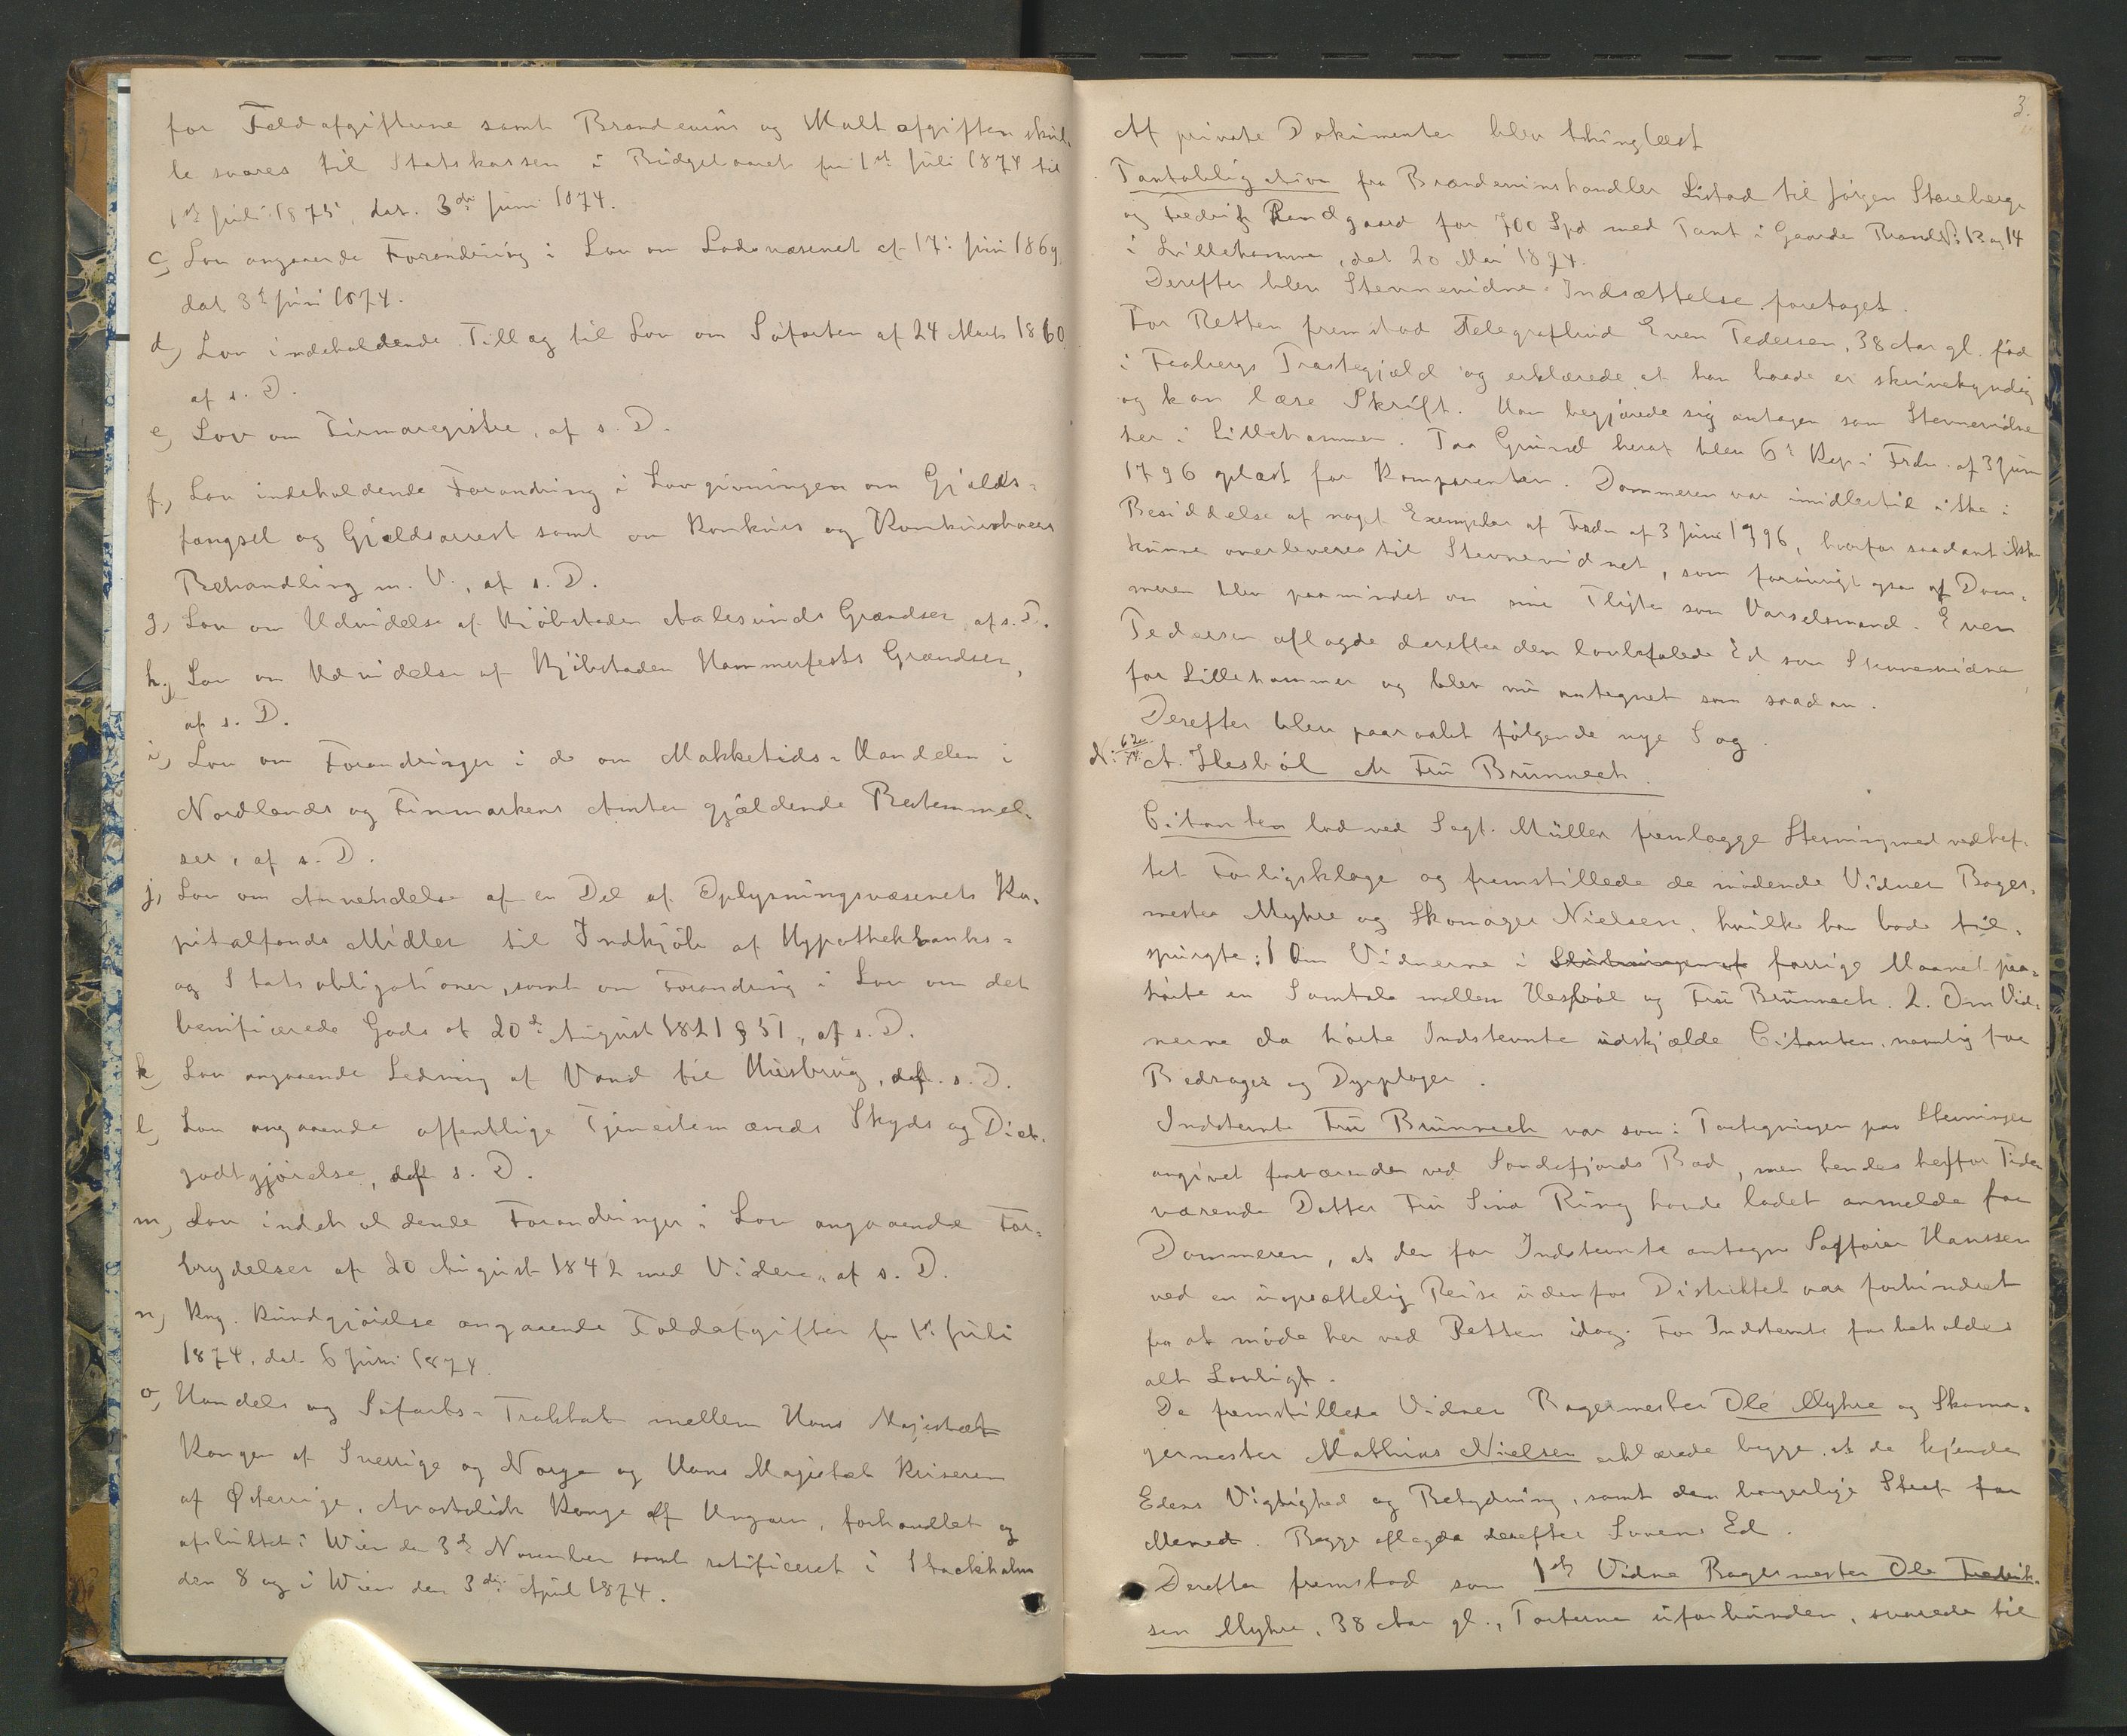 for Toldafgifterne samt Brændeviins og Maltafgiften skul-
le svares til Statskassen i Budgetaaret fra 1ste Juli 1874 til
1ste Juli 1875, dat. 3die Juni 1874.
c, Lov angaaende Forandring i Lov om Lodsvæsenet af 17de Juni 1869,
dat 3die Juni 1874.
d, Lov indeholdende Tillæg til Lov om Søfarten af 24 Marts 1860
af s. D.
e, Lov om Firmaregistre, af s. D.
f, Lov indeholdende Forandring i Lovgivningen om Gjælds-
fængsel og Gjældsarrest samt om Konkurs og Konkursboers
Behandling m. V., af s. D.
g, Lov om Udvidelse af Kjøbstaden Aalesunds Grændser, af s. D.
h, Lov om Udvidelse af Kjøbstaden Hammerfests Grændser,
af s. D.
i, Lov om Forandringer i de om Makketids-Handelen i
Nordlands og Finmarkens Amter gjældende Bestemmel-
ser, af s. D.
j, Lov om Anvendelse af en Del af Oplysningsvæsenets Ka-
pitalfonds Midler til Indkjøb af Hypothekbanks-
og Statsobligationer, samt om Forandring i Lov om det
benificerede Gods af 20de August 1821 § 51, af s. D.
k, Lov angaaende Ledning af Vand til Husbrug, af s. D.
l, Lov angaaende offentlige Tjenestemænds Skyds og Diæt-
godtgjørelse, af s. D.
m, Lov indeholdende Forandringer i Lov angaaende For-
brydelser af 20 August 1842 med Videre, af s. D.
n, Kng. Kundgjørelse angaaende Toldafgifter fra 1ste Juli
1874, dat. 6 Juni 1874.
o, Handels og Søfarts-Traktat mellem Hans Majestæt
Kongen af Sverrige og Norge og Hans Majestæt Keiseren
af Østerrige, Apostolisk Konge af Ungarn, forhandlet og
afsluttet i Wien den 3die November samt ratificeret i Stockholm
den 8 og i Wien den 3die April 1874.
3.
Af private Dokumenter blev thinglæst
Pantobligation fra Brændevinshandler Listad til Jørgen Storeberge
og Fredrik Randgaard for 700 Spd med Pant i Gaarde Brand No 13 og 14
i Lillehammer, dat 20 Mai 1874.
Derefter blev Stevnevidne-Indsættelse foretaget.
For Retten fremstod Telegrafbud Even Pedersen, 38 Aar gl. fød
i Faabergs Præstegjæld og erklærede at han baade er skrivekyndig
og kan læse Skrift. Han begjærede sig antagen som Stevnevidne
her i Lillehammer. Paa Grund heraf blev 6te Kap i Frdn. af 3 Juni
1796 oplæst for Komparenten. Dommeren var imidlertid ikke i
Besiddelse af noget Exemplar af Frdn af 3 Juni 1796, hvorfor saadant ikke
kunne overleveres til Stevnevidnet, som forøvrigt ogsaa af Dom-
meren blev paamindet om sine Pligter som Varselsmand. Even
Pedersen aflagde derefter den lovbefalede Ed som Stevnevidne
for Lillehammer og blev nu antegnet som saadan.
Derefter blev paaraabt følgende nye Sag.
No 62/74. A. Hesbøl ctr Fru Brunnech.
Citanten lod ved Sagf. Müller fremlægge Stevning med vedhef-
tet Forligsklage og fremstillede de mødende Vidner Bager-
mester Myhre og Skomager Nielsen, hvilke han bad til-
spurgte: 1 Om Vidnerne i Slutningen af forrige Maaned paa-
hørte en Samtale mellem Hesbøl og Fru Brunnech. 2. Om Vid-
nerne da hørte Indstevnte udskjælde Citanten, navnlig for
Bedrager og Dyrplager.
Indstevnte Fru Brunnech var som i Paategningen paa Stevningen
angivet fraværende ved Sandefjords Bad, men hendes herfor Tiden
værende Datter Fru Sina Ring havde ladet anmelde for
Dommeren, at den for Indstevnte antagne Sagfører Hanssen
ved en uopsættelig Reise udenfor Distriktet var forhindret
fra at møde her ved Retten idag. For Indstevnte forbeholdes
alt Lovligt.
De fremstillede Vidner Bagermester Ole Myhre og Skoma-
germester Mathias Nielsen erklærede begge, at de kjende
Edens Vigtighed og Betydning, samt den borgerlige Straf for
Mened. Begge aflagde derefter Lovens Ed.
Derefter fremstod som 1ste Vidne Bagermester Ole Fredrik-
sen Myhre, 38 Aar gl., Parterne uforbunden, svarede til